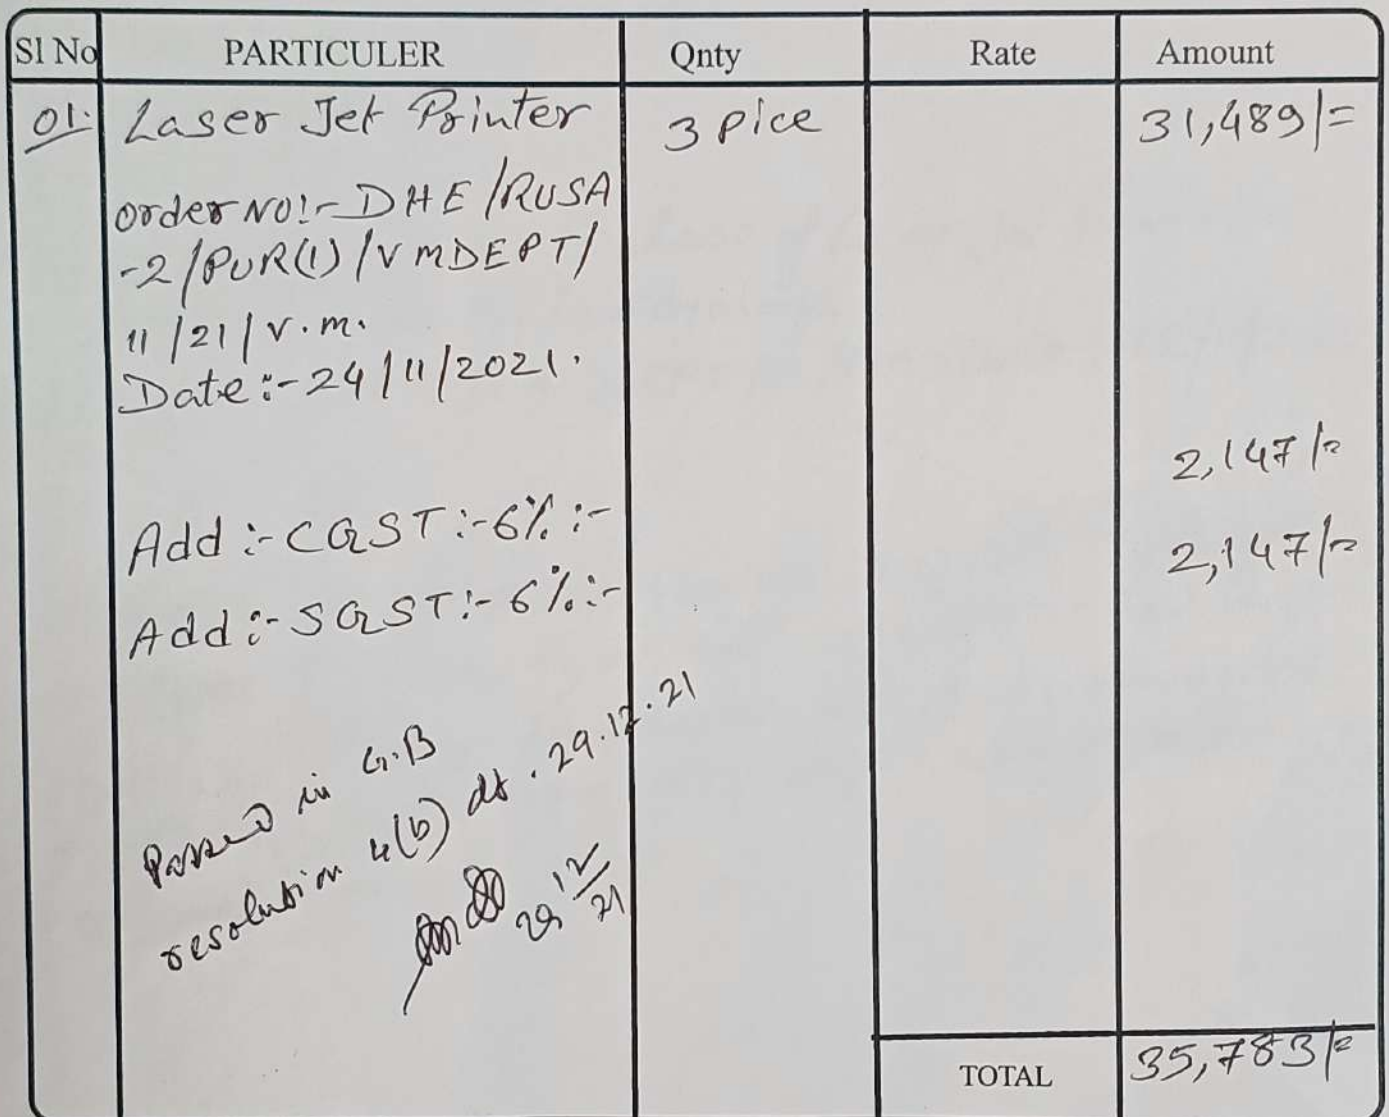 Sl No PARTICULER Qnty Rate Amount
01. Laser Jet Printer 3 Pice 31,489/=
Order NO:- DHE/RUSA
-2/PUR(1)/VMDEPT/
11/21/V.M.
Date:- 24/11/2021.
2,147/=
Add:- CGST:- 6%:-
2,147/=
Add:- SGST:- 6%:-
Passed in G.B
resolution 4(b) dt. 29.12.21
29/12/21
TOTAL 35,783/=